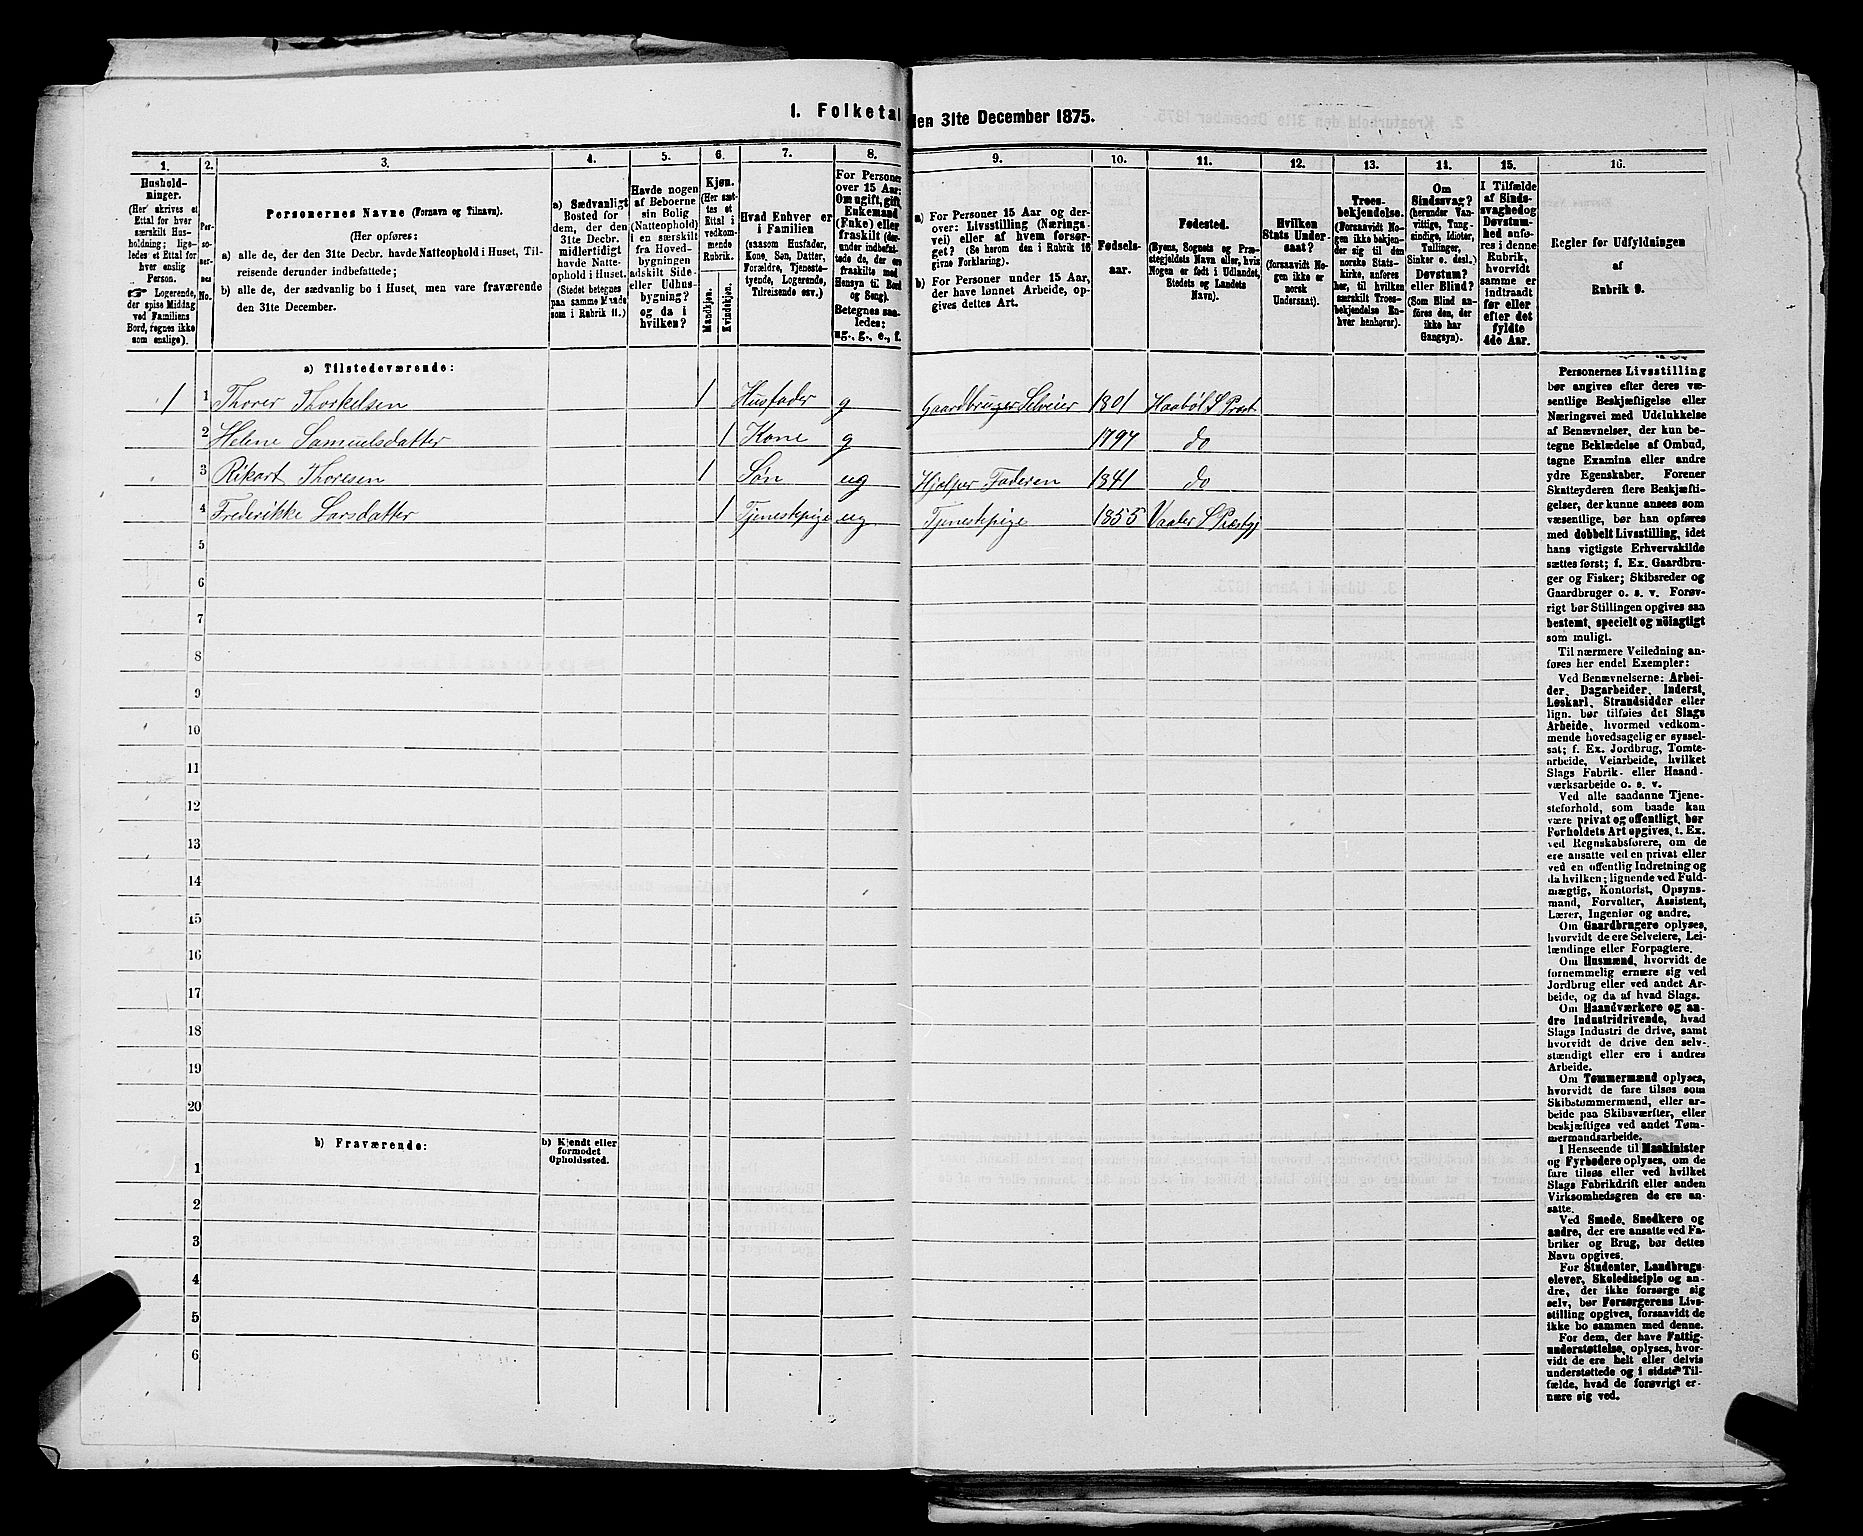 1. Folketal den 31te December 1875.
1. 2. 3. 4. 5. 6. 7. 8. 9. 10. 11. 12. 13. 14. 15. 16.
Hushold-
ninger.
(Her skrives et
Ettal for hver
særskilt Hus-
holdning; lige-
ledes et Ettal for
hver enslig
Person.
☞ Logerende,
der spise Middag
ved Familiens
Bord, regnes ikke
som enslige).
Per-
so-
ner-
nes
No.
Personernes Navne (Fornavn og Tilnavn).
(Her opføres:
a) alle de, der den 31te Decbr. havde Natteophold i Huset, Til-
reisende derunder indbefattede;
b) alle de, der sædvanlig bo i Huset, men vare fraværende
den 31te December.
a) Sædvanligt
Bosted for
dem, der den
31te Decbr.
midlertidigt
havde Natte-
ophold i Huset.
(Stedet betegnes
paa samme Maade
som i Rubrik 11.)
Havde nogen
af Beboerne
sin Bolig
(Natteophold)
i en særskilt
fra Hoved-
bygningen
adskilt Side-
eller Udhus-
bygning?
og da i
hvilken?
Kjøn.
(Her sæt-
tes et
Ettal i
vedkom-
mende
Rubrik.
Mandkjøn.
Kvindekjøn.
Hvad Enhver er
i Familien
(saasom Husfader,
Kone, Søn, Datter,
Forældre, Tjeneste-
tyende, Logerende,
Tilreisende osv.)
For Personer
over 15 Aar:
Om ugift, gift,
Enkemand
(Enke) eller
fraskilt (der-
under indbefat-
tede de, der ere
fraskilte med
Hensyn til Bord
og Seng).
Betegnes saa-
ledes:
ug., g., e., f.
a) For Personer 15 Aar og der-
over: Livsstilling (Nærings-
vei) eller af hvem forsør-
get? (Se herom den i Rubrik 16
givne Forklaring).
b) For Personer under 15 Aar,
der have lønnet Arbeide, op-
gives dettes Art.
Fødsels-
aar.
Fødested.
(Byens, Sognets og Præ-
stegjeldets Navn eller, hvis
Nogen er født i Udlandet,
Stedets og Landets
Navn).
Hvilken
Stats Under-
saat?
(forsaavidt No-
gen ikke er
norsk
Undersaat).
Troes-
bekjendelse.
(Forsaavidt No-
gen ikke bekjen-
der sig til den
norske Stats-
kirke, anføres
her, til hvilken
særskilt Troes-
bekjendelse En-
hver henhører).
Om
Sindssvag?
(herunder Van-
vittige, Tung-
sindige, Idioter,
Tullinger,
Sinker o. desl.)
Døvstum?
eller Blind?
(Som Blind an-
føres den, der
ikke har
Gangsyn).
I Tilfælde
af Sinds-
svaghed og
Døvstum-
hed anfø-
res i denne
Rubrik,
hvorvidt
samme er
indtraadt
før eller
efter det
fyldte
4de Aar.
Regler for Udfyldningen
af
Rubrik 9.
a) Tilstedeværende:
1 1 Thorer Thorkelsen 1 Husfader g Gaardbruger Selveier 1801 Haabøl S Præst
2 Helene Samuelsdatter 1 Kone g 1797 do
3 Rikart Thoresen 1 Søn ug Hjælper Faderen 1841 do
4 Frederikke Larsdatter 1 Tjenestepige ug Tjenestepige 1855 Vaaler S Præstgj
5
6
7
8
9
10
11
12
13
14
15
16
17
18
19
20
b) Fraværende:
b) Kjendt eller
formodet
Opholdssted.
1
2
3
4
5
6
Personernes Livsstilling
bør angives efter deres væ-
sentlige Beskjæftigelse eller
Næringsvei med Udelukkelse
af Benævnelser, der kun be-
tegne Beklædelse af Ombud,
tagne Examina eller andre
ydre Egenskaber. Forener
Skatteyderen flere Beskjæfti-
gelser, der kunne ansees som
væsentlige, bør han opføres
med dobbelt Livsstilling, idet
hans vigtigste Erhvervskilde
sættes først; f. Ex. Gaardbru-
ger og Fisker; Skibsreder og
Gaardbruger o. s. v. Forøv-
rigt bør Stillingen opgives saa
bestemt, specielt og nöiagtigt
som muligt.
Til nærmere Veiledning an-
føres her endel Exempler:
Ved Benævnelserne: Arbei-
der, Dagarbeider, Inderst,
Løskarl, Strandsidder eller
lign. bør tilføies det Slags
Arbeide, hvormed vedkom-
mende hovedsagelig er syssel-
sat; f. Ex. Jordbrug, Tomte-
arbeide, Veiarbeide, hvilket
Slags Fabrik- eller Haand-
værksarbeide o. s. v.
Ved alle saadanne Tjene-
steforhold, som baade kan
være privat og offentligt, bør
Forholdets Art opgives, t. Ex.
ved Regnskabsførere, om de
ere ansatte ved en privat eller
ved en offentlig Indretning og
da hvilken; lignende ved Fuld-
mægtig, Kontorist, Opsyns-
mand, Forvalter, Assistent,
Lærer, Ingeniør og andre.
Om Gaardbrugere oplyses,
hvorvidt de ere Selveiere, Lei-
lændinge eller Forpagtere.
Om Husmænd, hvorvidt de
fornemmelig ernære sig ved
Jordbrug eller ved andet Ar-
beide, og da af hvad Slags.
Om Haandværkere og an-
dre Industridrivende, hvad
Slags Industri de drive, samt
hvorvidt de drive den selv-
stændigt eller ere i andres
Arbeide.
Om Tømmermænd oplyses,
hvorvidt de fare tilsøs som
Skibstømmermænd, eller ar-
beide paa Skibsværfter, eller
beskjæftiges ved andet Tøm-
mermandsarbeide.
I Henseende til Maskinister
og Fyrbødere oplyses, om de
fare tilsøs eller ved hvilket
Slags Fabrikdrift eller anden
Virksomhedsgren de ere an-
satte.
Ved Smede, Snedkere og
andre, der ere ansatte ved Fa-
briker og Brug, bør dettes
Navn opgives.
For Studenter, Landbrugs-
elever, Skoledisciple og an-
dre, der ikke forsørge sig
selv, bør Forsørgerens Livs-
stilling opgives, forsaavidt de
ikke bo sammen med denne.
For dem, der have Fattig-
understøttelse, oplyses, hvor-
vidt de ere helt eller delvis
understøttede og i sidste Til-
fælde, hvad de forøvrigt er-
nære sig ved.